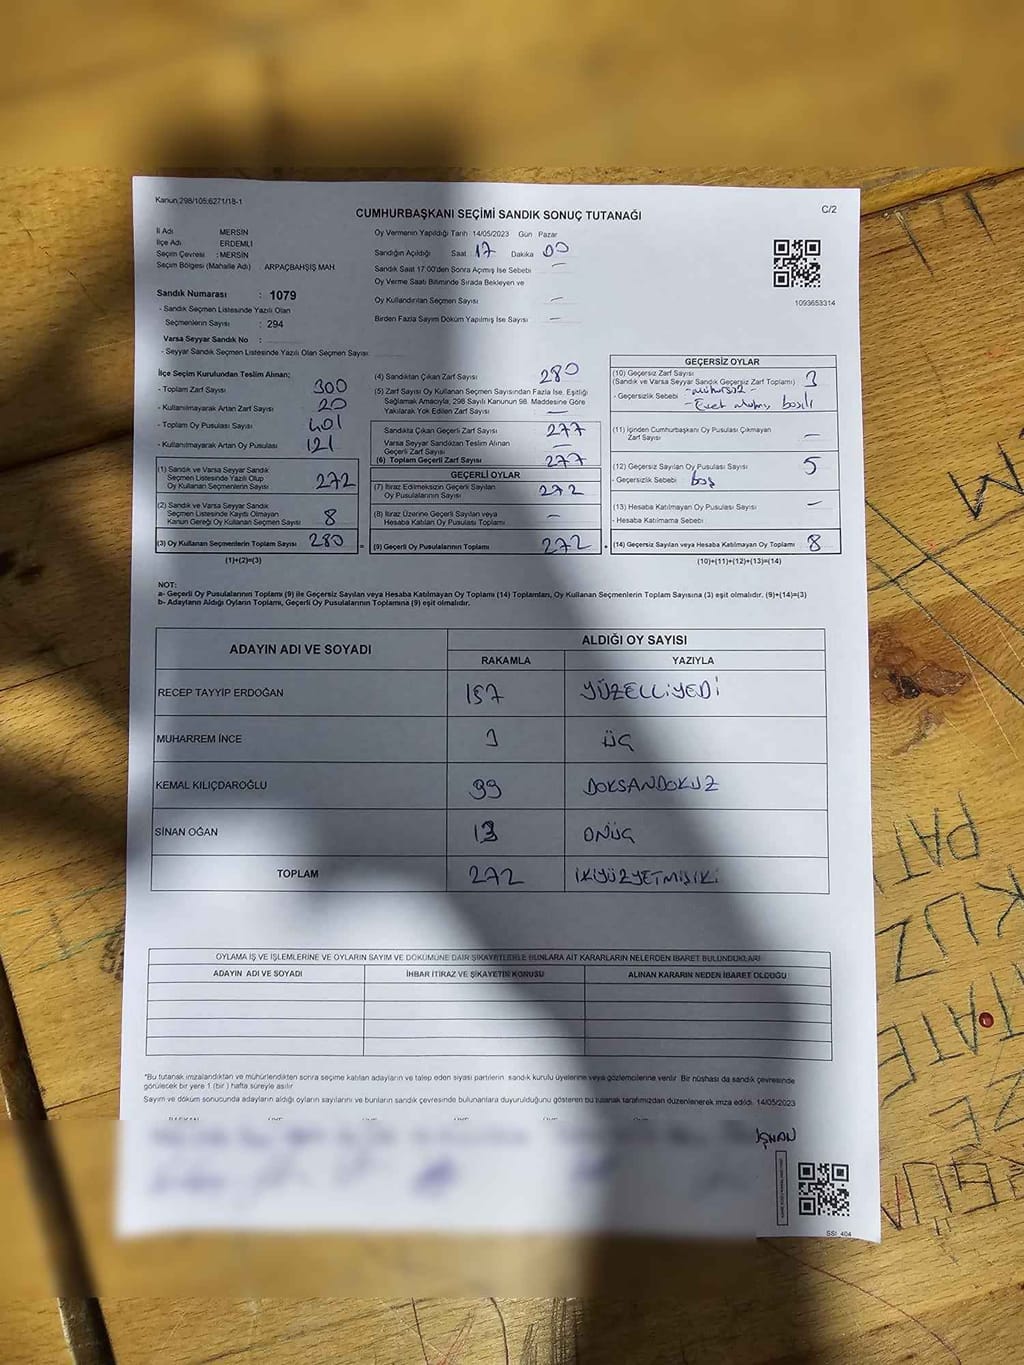 Kanun;298/105;6271/18-1
CUMHURBAŞKANI SEÇİMİ SANDIK SONUÇ TUTANAĞI
C/2
İli Adı MERSİN
İlçe Adı ERDEMLİ
Seçim Çevresi : MERSİN
Seçim Bölgesi (Mahalle Adı) ARPAÇBAHŞİŞ MAH
Sandık Numarası : 1079
- Sandık Seçmen Listesinde Yazılı Olan
Seçmenlerin Sayısı : 294
Varsa Seyyar Sandık No :
- Seyyar Sandık Seçmen Listesinde Yazılı Olan Seçmen Sayısı
Oy Vermenin Yapıldığı Tarih 14/05/2023 Gün Pazar
Sandığın Açıldığı Saat 17 Dakika 00
Sandık Saat 17:00'den Sonra Açımış İse Sebebi —
Oy Verme Saati Bitiminde Sırada Bekleyen ve
Oy Kullandırılan Seçmen Sayısı —
Birden Fazla Sayım Döküm Yapılmış İse Sayısı —
1093653314
İlçe Seçim Kurulundan Teslim Alınan;
- Toplam Zarf Sayısı 300
- Kullanılmayarak Artan Zarf Sayısı 20
- Toplam Oy Pusulası Sayısı 401
- Kullanılmayarak Artan Oy Pusulası 121
(1) Sandık ve Varsa Seyyar Sandık
Seçmen Listesinde Yazılı Olup
Oy Kullanan Seçmenlerin Sayısı 272
(2) Sandık ve Varsa Seyyar Sandık
Seçmen Listesinde Kayıtlı Olmayan
Kanun Gereği Oy Kullanan Seçmen Sayısı 8
(3) Oy Kullanan Seçmenlerin Toplam Sayısı 280
(1)+(2)=(3)
(4) Sandıktan Çıkan Zarf Sayısı 280
(5) Zarf Sayısı Oy Kullanan Seçmen Sayısından Fazla İse, Eşitliği
Sağlamak Amacıyla, 298 Sayılı Kanunun 98. Maddesine Göre
Yakılarak Yok Edilen Zarf Sayısı —
Sandıkta Çıkan Geçerli Zarf Sayısı 277
Varsa Seyyar Sandıktan Teslim Alınan
Geçerli Zarf Sayısı —
(6) Toplam Geçerli Zarf Sayısı 277
GEÇERLİ OYLAR
(7) İtiraz Edilmeksizin Geçerli Sayılan
Oy Pusulalarının Sayısı 272
(8) İtiraz Üzerine Geçerli Sayılan veya
Hesaba Katılan Oy Pusulası Toplamı —
= (9) Geçerli Oy Pusulalarının Toplamı 272
GEÇERSİZ OYLAR
(10) Geçersiz Zarf Sayısı
(Sandık ve Varsa Seyyar Sandık Geçersiz Zarf Toplamı) 3
- Geçersizlik Sebebi - mühürsüz -
- Evet mührü basılı
(11) İçinden Cumhurbaşkanı Oy Pusulası Çıkmayan
Zarf Sayısı —
(12) Geçersiz Sayılan Oy Pusulası Sayısı 5
- Geçersizlik Sebebi boş
(13) Hesaba Katılmayan Oy Pusulası Sayısı —
- Hesaba Katılmama Sebebi
+ (14) Geçersiz Sayılan veya Hesaba Katılmayan Oy Toplamı 8
(10)+(11)+(12)+(13)=(14)
NOT:
a- Geçerli Oy Pusulalarının Toplamı (9) ile Geçersiz Sayılan veya Hesaba Katılmayan Oy Toplamı (14) Toplamları, Oy Kullanan Seçmenlerin Toplam Sayısına (3) eşit olmalıdır. (9)+(14)=(3)
b- Adayların Aldığı Oyların Toplamı, Geçerli Oy Pusulalarının Toplamına (9) eşit olmalıdır.
ADAYIN ADI VE SOYADI ALDIĞI OY SAYISI
RAKAMLA YAZIYLA
RECEP TAYYİP ERDOĞAN 157 YÜZELLİYEDİ
MUHARREM İNCE 3 ÜÇ
KEMAL KILIÇDAROĞLU 99 DOKSANDOKUZ
SİNAN OĞAN 13 ONÜÇ
TOPLAM 272 İKİYÜZYETMİŞİKİ
OYLAMA İŞ VE İŞLEMLERİNE VE OYLARIN SAYIM VE DÖKÜMÜNE DAİR ŞİKAYETLERLE BUNLARA AİT KARARLARIN NELERDEN İBARET BULUNDUKLARI
ADAYIN ADI VE SOYADI İHBAR İTİRAZ VE ŞİKAYETİN KONUSU ALINAN KARARIN NEDEN İBARET OLDUĞU
*Bu tutanak imzalandıktan ve mühürlendikten sonra seçime katılan adayların ve talep eden siyasi partilerin sandık kurulu üyelerine veya gözlemcilerine verilir. Bir nüshası da sandık çevresinde
görülecek bir yere 1 (bir) hafta süreyle asılır
Sayım ve döküm sonucunda adayların aldığı oyların sayılarını ve bunların sandık çevresinde bulunanlara duyurulduğunu gösteren bu tutanak tarafımızdan düzenlenerek imza edildi. 14/05/2023
SSI_404
PAT
KUZ
TATE